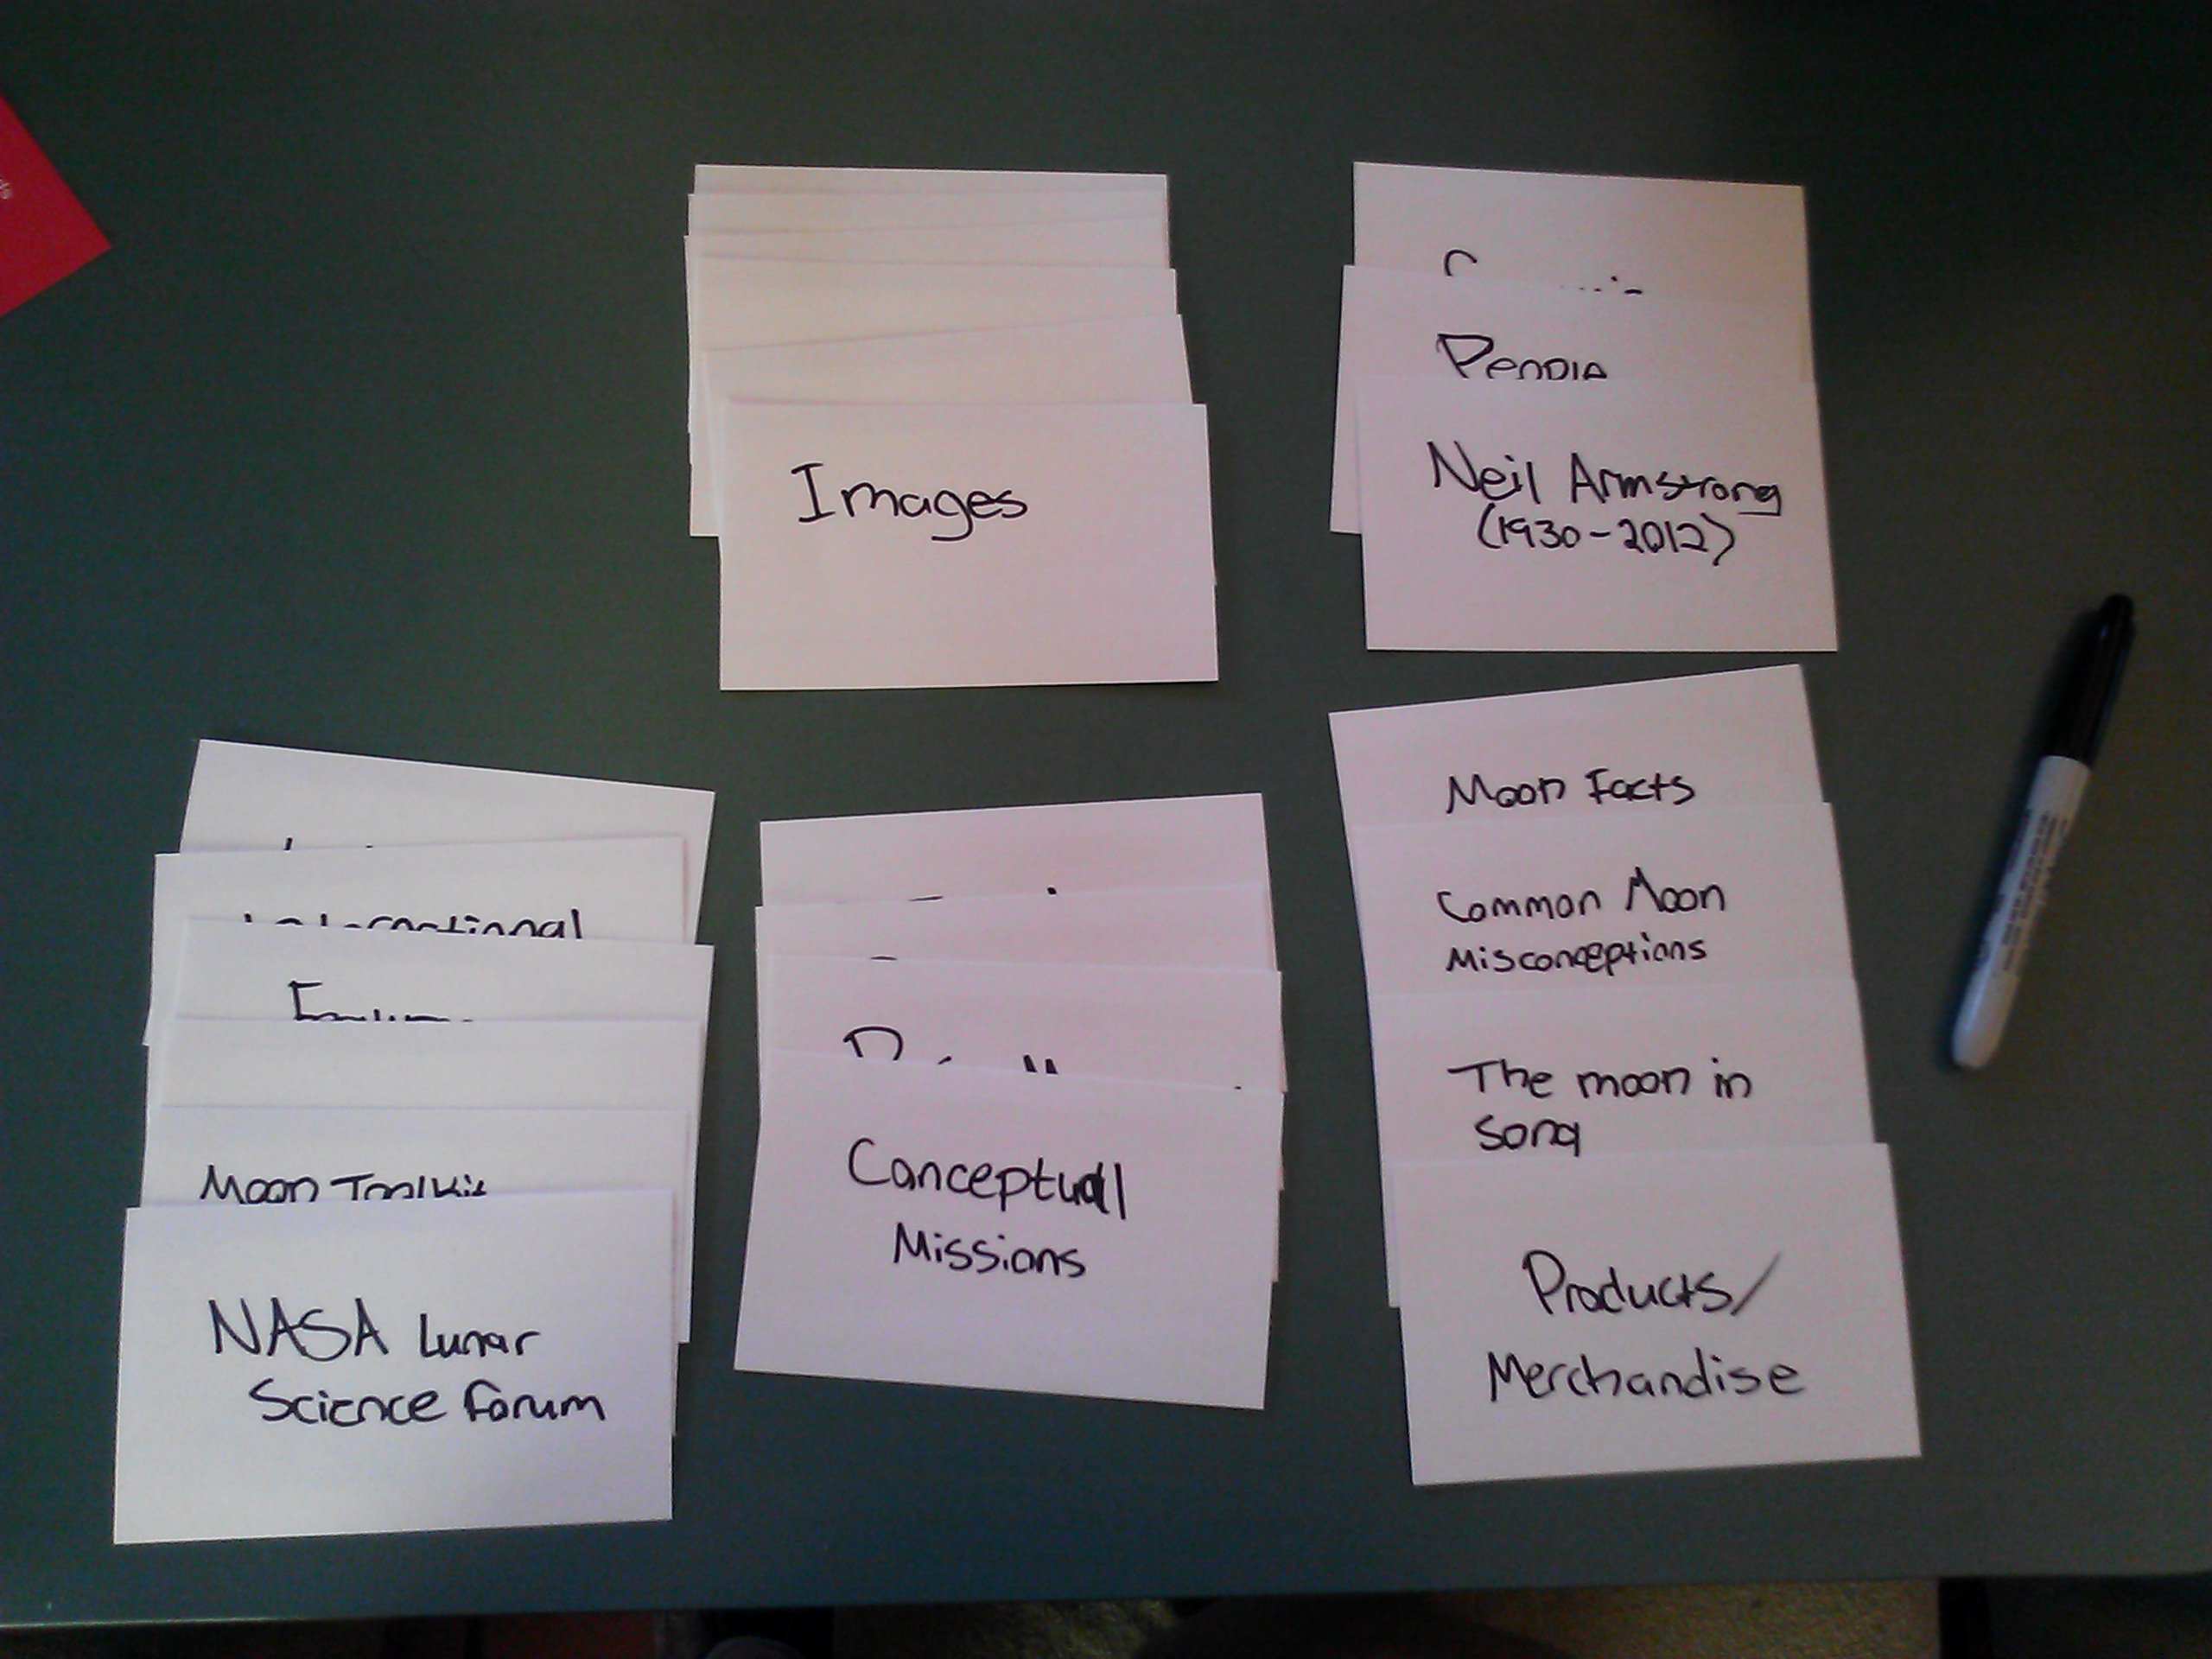 Images
People
Neil Armstrong
(1930-2012)
International
Moon Toolkit
NASA Lunar
Science Forum
Conceptual
Missions
Moon Facts
Common Moon
Misconceptions
The moon in
song
Products/
Merchandise